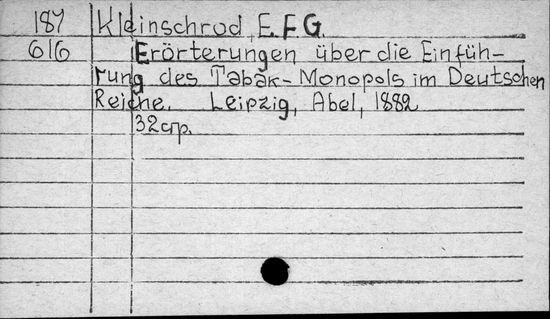 187 Kleinschrod E.F.G.
616 Erörterungen über die Einfüh-
rung des Tabak-Monopols im Deutschen
Reiche. Leipzig, Abel, 1882
32стр.